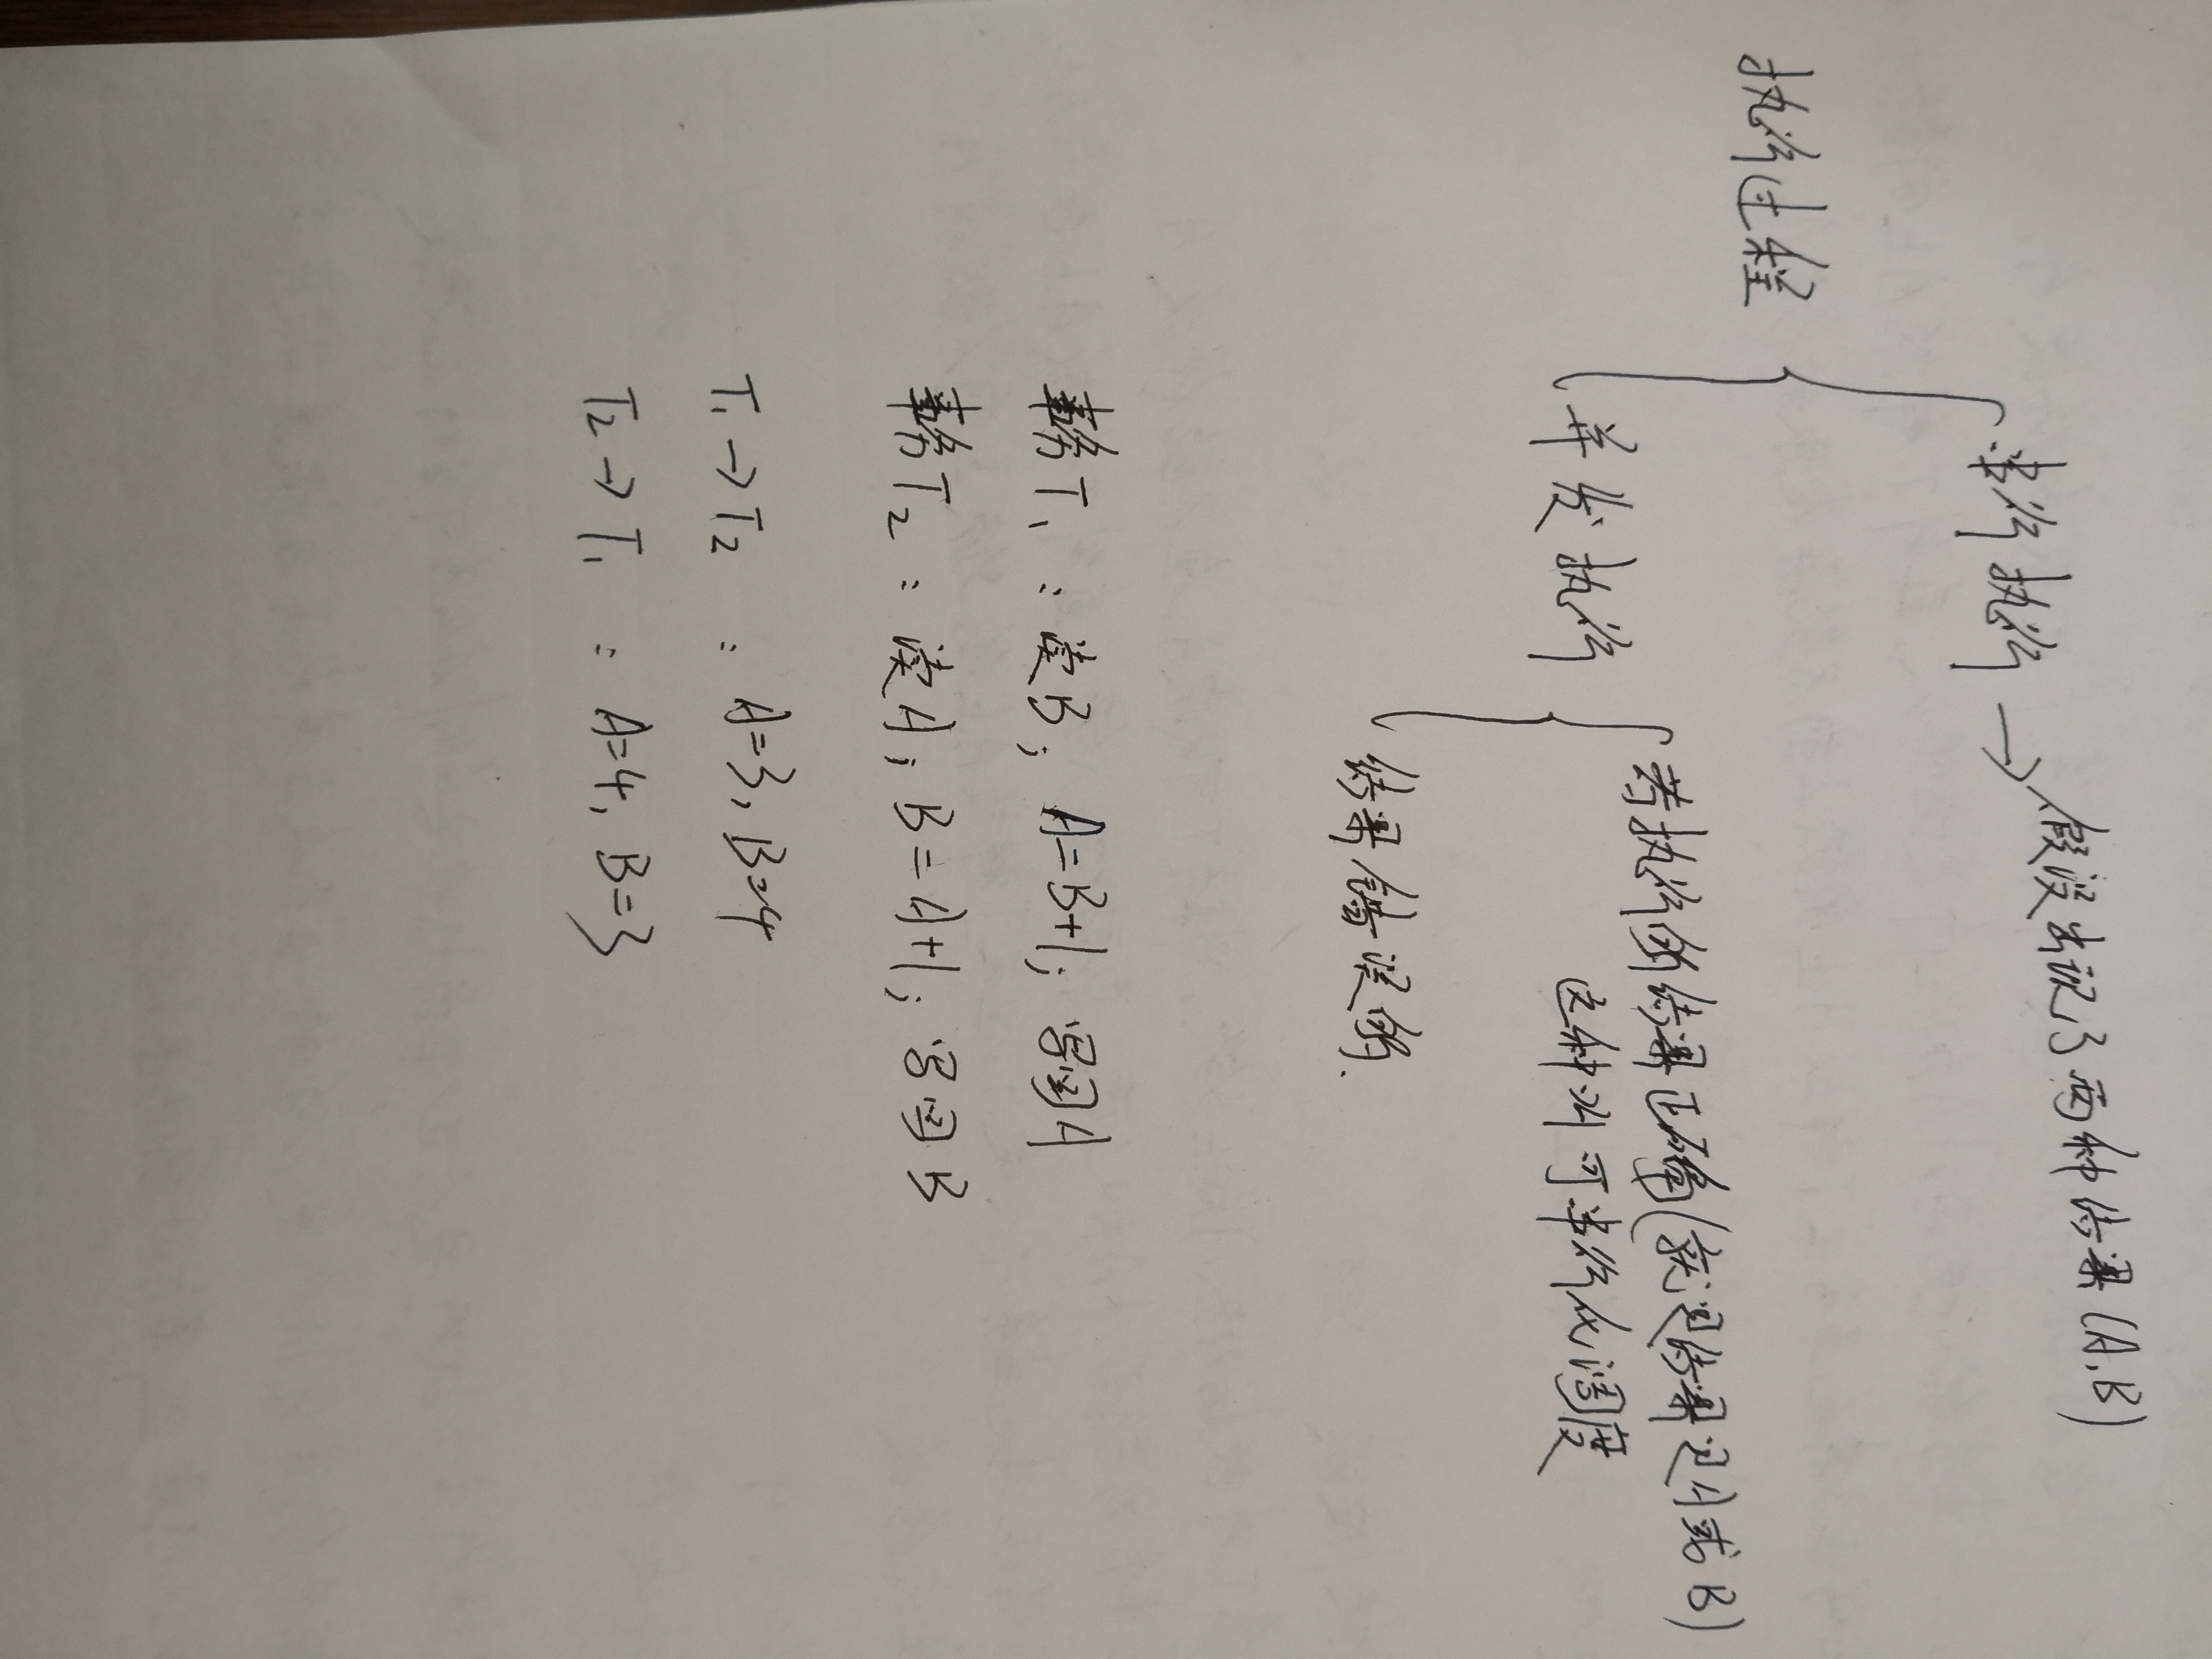 串行执行 → 假设出现了两种结果(A,B)
执行过程
若执行的结果正确(就是结果是A或B)
并发执行
这种叫可串行化调度
结果错误的.
事务T1 : 读B; A=B+1; 写回A
事务T2 : 读A; B=A+1; 写回B
T1→T2 : A=3, B=4
T2→T1 : A=4, B=3